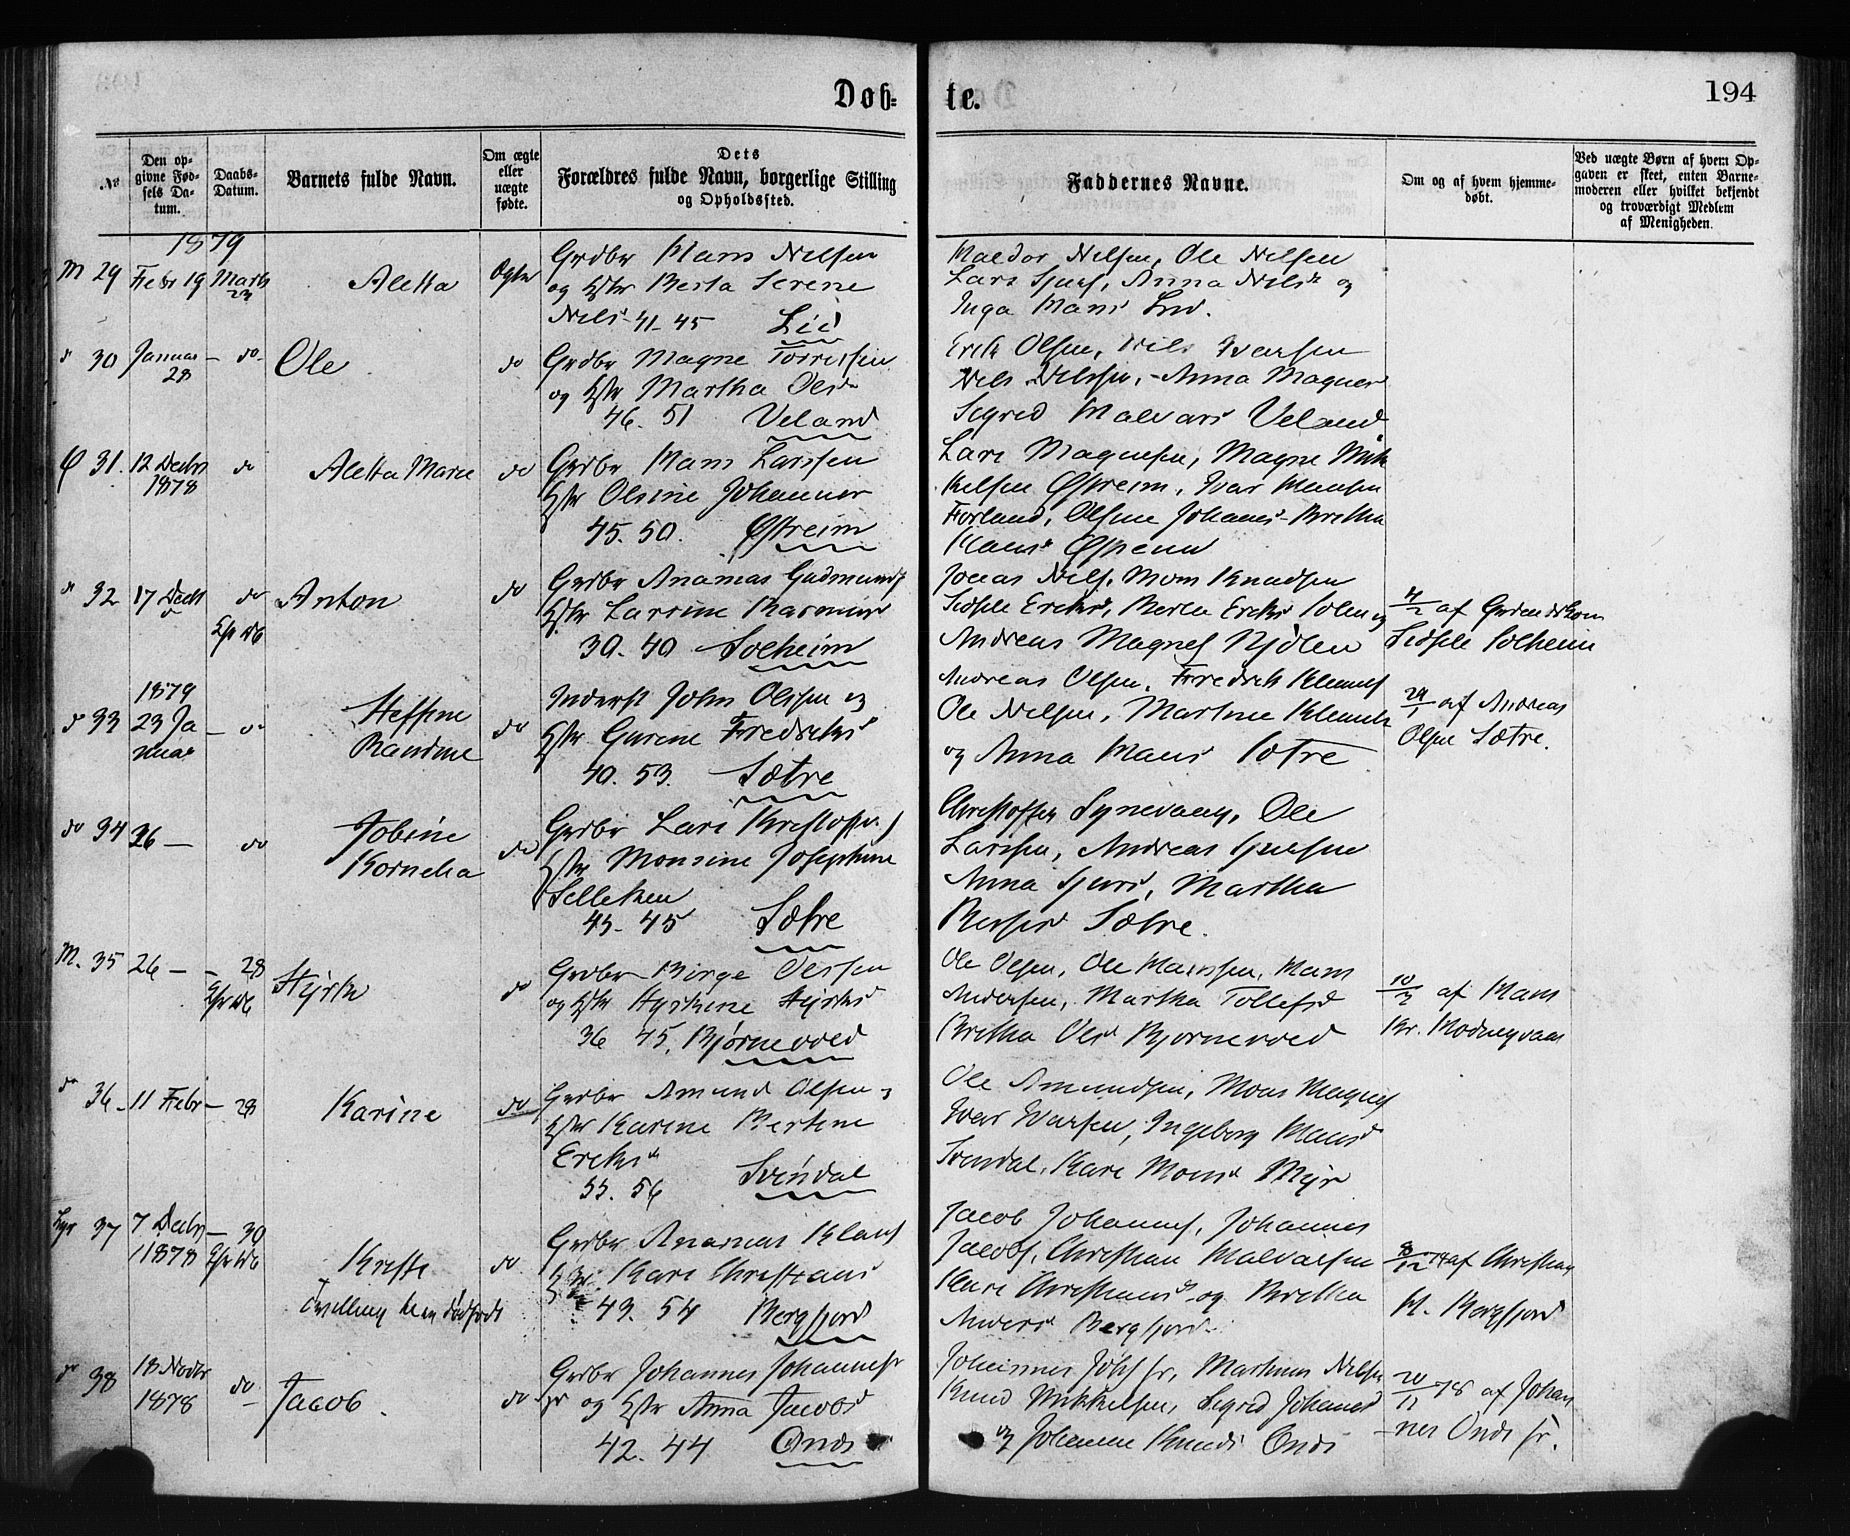 Døb-
te.
194
№
Den op-
givne Fød-
sels Da-
tum.
Daabs-
Datum.
Barnets fulde Navn.
Om ægte
eller
uægte
fødte.
Dets
Forældres fulde Navn, borgerlige Stilling
og Opholdssted.
Faddernes Navne.
Om og af hvem hjemme-
døbt.
Ved uægte Børn af hvem Op-
gaven er skeet, enten Barne-
moderen eller hvilket bekjendt
og troværdigt Medlem
af Menigheden.
1879
M 29 Febr 19 Marts 23 Aletta Ægte
Grdbr Hans Nilsen
og Hstr Berta Serene
Nils 41-45 Lid
Haldor Nilsen, Ole Nilsen
Lars Sjurs, Anna Nilsd og
Inga Hans Lid.
30 Januar 28 - do - Ole do
Grdbr Magne Torrissen
og Hstr Martha Olsd
46. 51 Veland
Erik Olsen, Nils Ivarsen
Nils Nilssen, Anna Magnes
Sigrid Halvars Veland
31. 12 Decbr 1878 do Aletta Marie do
Grdbr Hans Larssen
Hstr Olsine Johannes
45. 50. Østreim
Lars Magnesen, Magne Mik
kelsen Østreim, Ivar Hansen
Forland, Olsine Johanes- Britha
Hans Østreim
32 17 Decb do Anton do
Grdbr Ananias Gudmunds
Hstr Larsine Rasmus
39. 40 Solheim
Jonas Nils, Mons Knudsen
Erikse, Berta Eriks Solem og
Andreas Magnes Njølen
4/2 af
Solheim
1879
33 23 Ja
nuar - do Steffine
Randine do
Inderst John Olssen og
Hstr Gurine Fredriks
40. 53. Sætre
Andreas Olsen, Fredrik Klaus
Ole Nilsen, Martine Klaus
og Anna Hans Sætre
24/1 af Andreas
Olsen Sætre.
do 34 26 - do Jobine
Kornelia do
Grdbr Lars Kristoffers
Hstr Monsine Josephine
Selleken
43- 45 Sætre
Christoffer Synevaag, Ole
Larssen, Andreas Sjursen
Anna Sjurs, Martha
Sætre.
M. 35 26 - - 28 Styrk do
Grdbr Birge Olssen
og Hstr Styrks
36 45. Bjørnevoed
Ole Olsen, Ole Hanssen, Hans
Andersen, Martha Tollefsd
Britha Olsd Bjørnevoed
10/2 af Hans
36. 11 Febr - 28 Karine do
Grdbr Amund Olsen og
Hstr Karine Bertine
Eriksd
55. 56 Svendal
Ole Amundsen, Mons Magnes
Ivar Ivarsen, Ingeborg Hansd
Svendal, Kari Monsd Myr
37 7 Decbr - 30
1878
Kriste do
Tvilling
Grdbr Ananias Klaus
Kari Christians
43. 54 Bergfjord
Jacob Johannes, Johannes
Jacobs, Christian Halvarsen
Kari Christians og Britha
Anders Bergfjord
8/12 78 af Christian
H. Bergfjord
38 18 Novbr
1878 do Jacob do
Grdbr Johannes Johannes
jr og Hstr Anna Jacobs
42. 44 Ones
Johannes Johs sr, Martinus Nilsen
Knud Mikkelsen, Sigrid Johanes
og Johanne Knuds Ones
20/11 78 af Johan
nes Ones sr.